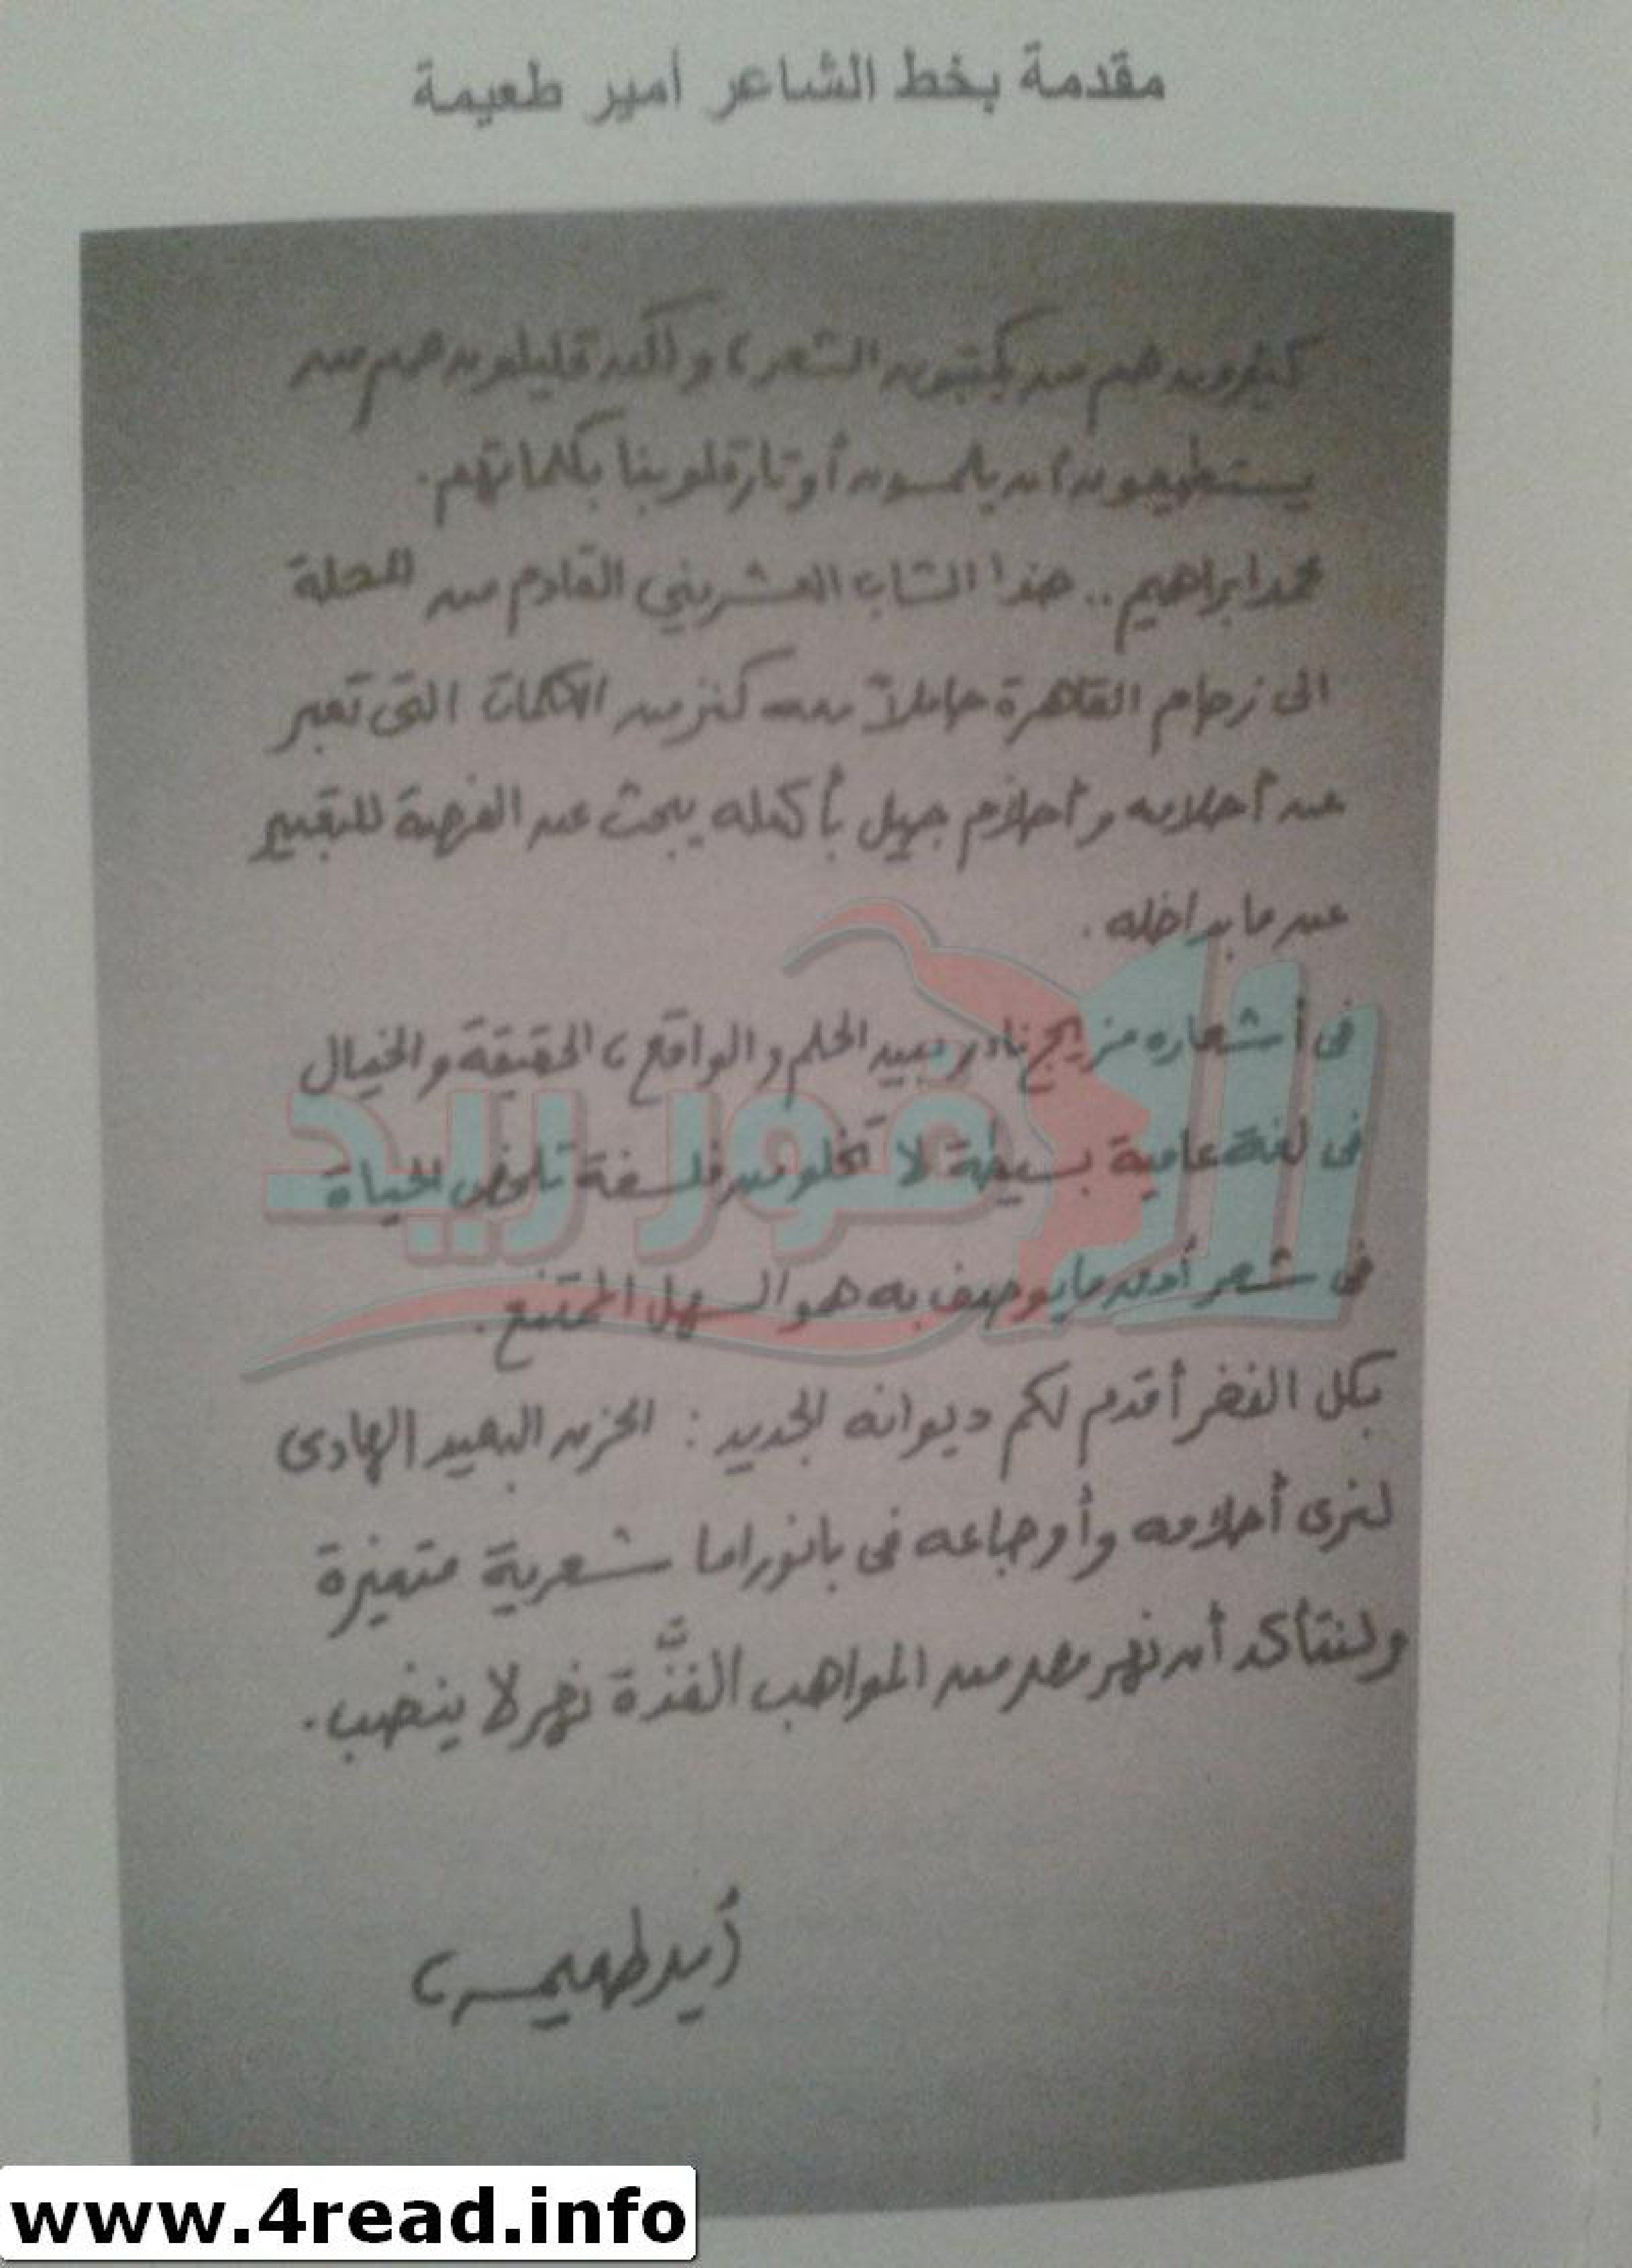 مقدمة بخط الشاعر أمير طعيمة
كثيرون هم من يكتبون الشعر، ولكن قليلون هم من
يستطيعون أن يلمسون أوتار قلوبنا بكلماتهم.
محمد ابراهيم .. هذا الشاب العشريني القادم من المحلة
الى زحام القاهرة حاملاً معه كنز من الكلمات التى تعبر
عن أحلامه وأحلام جيل بأكمله يبحث عن الفرصة للتعبير
عن ما بداخله .
فى أشعاره مزيج نادر بين الحلم والواقع، الحقيقة والخيال
فى لغة عامية بسيطة لا تخلو من فلسفة تلخص الحياة
فى شعر أدق ما يوصف به هو السهل الممتنع .
بكل الفخر أقدم لكم ديوانه الجديد : الحزن البعيد الهادى
لنرى أحلامه وأوجاعه فى بانوراما شعرية متميزة
ولنتأكد أن نهر مصر من المواهب الفذَّة نهر لا ينضب .
أمير طعيمه
فور ريد
www.4read.info